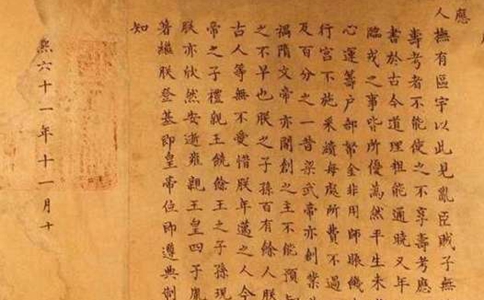 應
人撫有區宇以此見亂臣賊子無
壽考者不能使之不享壽考應
書於古今道理粗能通曉又年
臨戎之事皆所優為然平生未
心運籌户部帑金非用師賑饑
行宮不施采繢每處所費不過
及百分之一昔梁武帝亦創業
禍隋文帝亦開創之主不能預
之不早也朕之子孫百有餘人朕
古人等無不愛惜朕年邁之人今
帝之子禮親王饒餘王之子孫現
朕亦欣然安逝雍親王皇四子胤
著繼朕登基即皇帝位即遵典制
知
熙六十一年十一月十